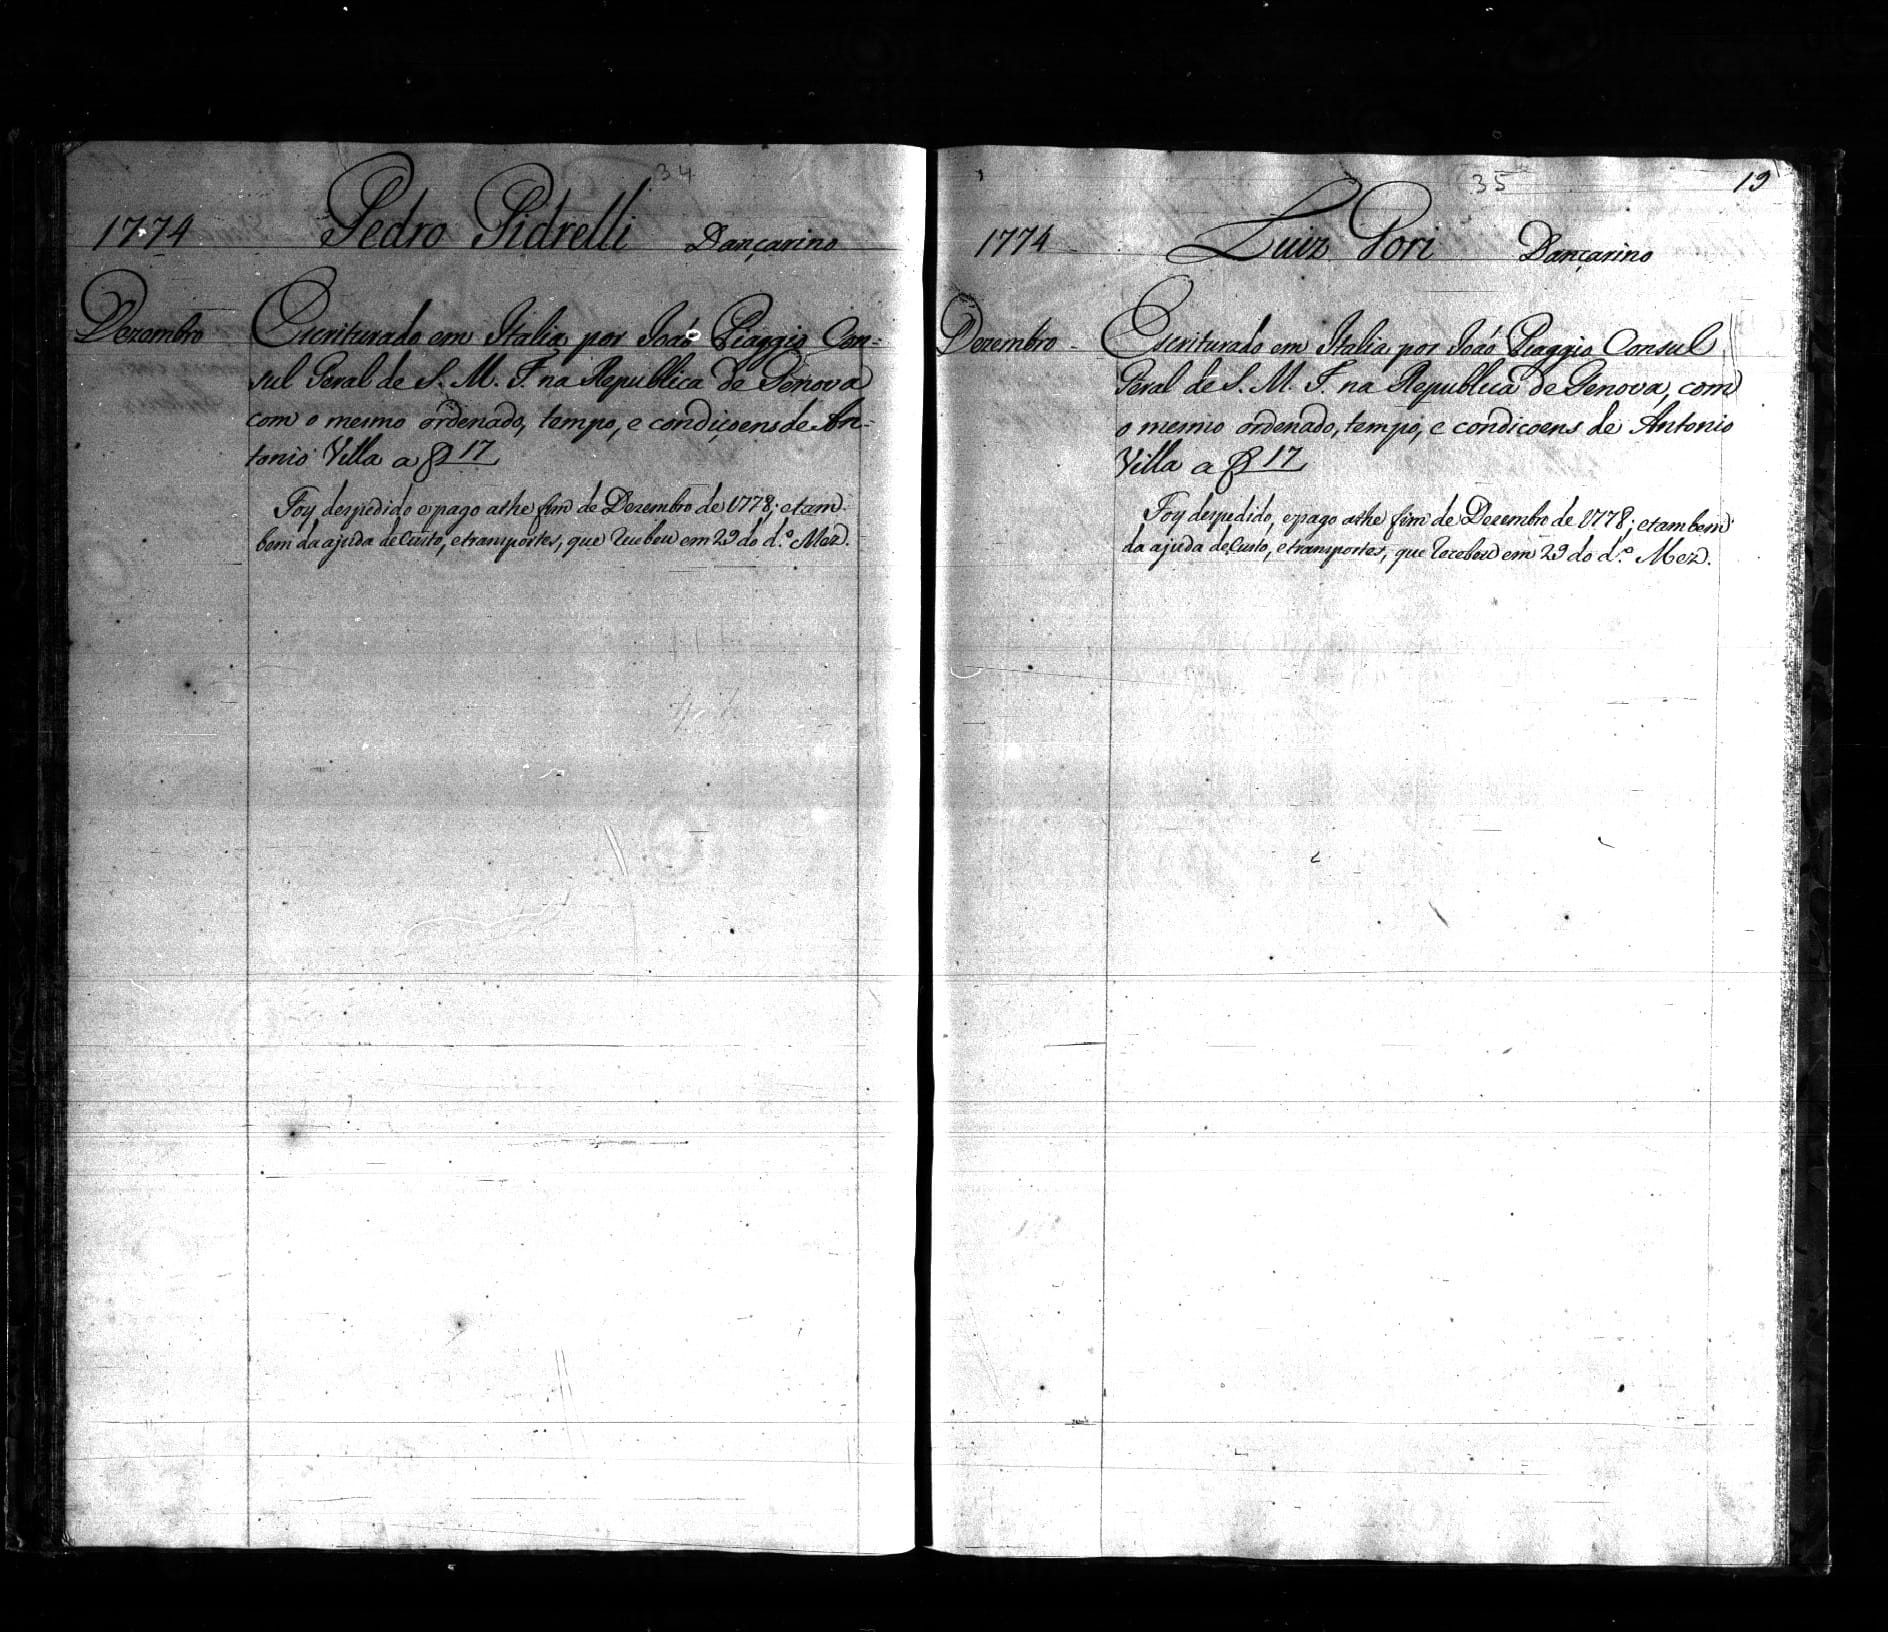 34
1774 Pedro Pidrelli Dançarino
Dezembro Escriturado em Italia por Joaõ Piaggio Con-
sul Geral de S. M. F. na Republica de Genova
com o mesmo ordenado, tempo, e condiçoens de An-
tonio Villa a f 17
Foy despedido e pago athe fim de Dezembro de 1778; e tam-
bem da ajuda de Custo, e transportes, que Recebeu em 29 do d.º Mez.
35
19
1774 Luiz Pori Dançarino
Dezembro - Escriturado em Italia por Joaõ Piaggio Consul
Geral de S. M. F. na Republica de Genova, com
o mesmo ordenado, tempo, e condiçoens de Antonio
Villa a f 17
Foy despedido, e pago athe fim de Dezembro de 1778; e tambem
da ajuda de Custo, e transportes, que Recebeu em 29 do d.º Mez.